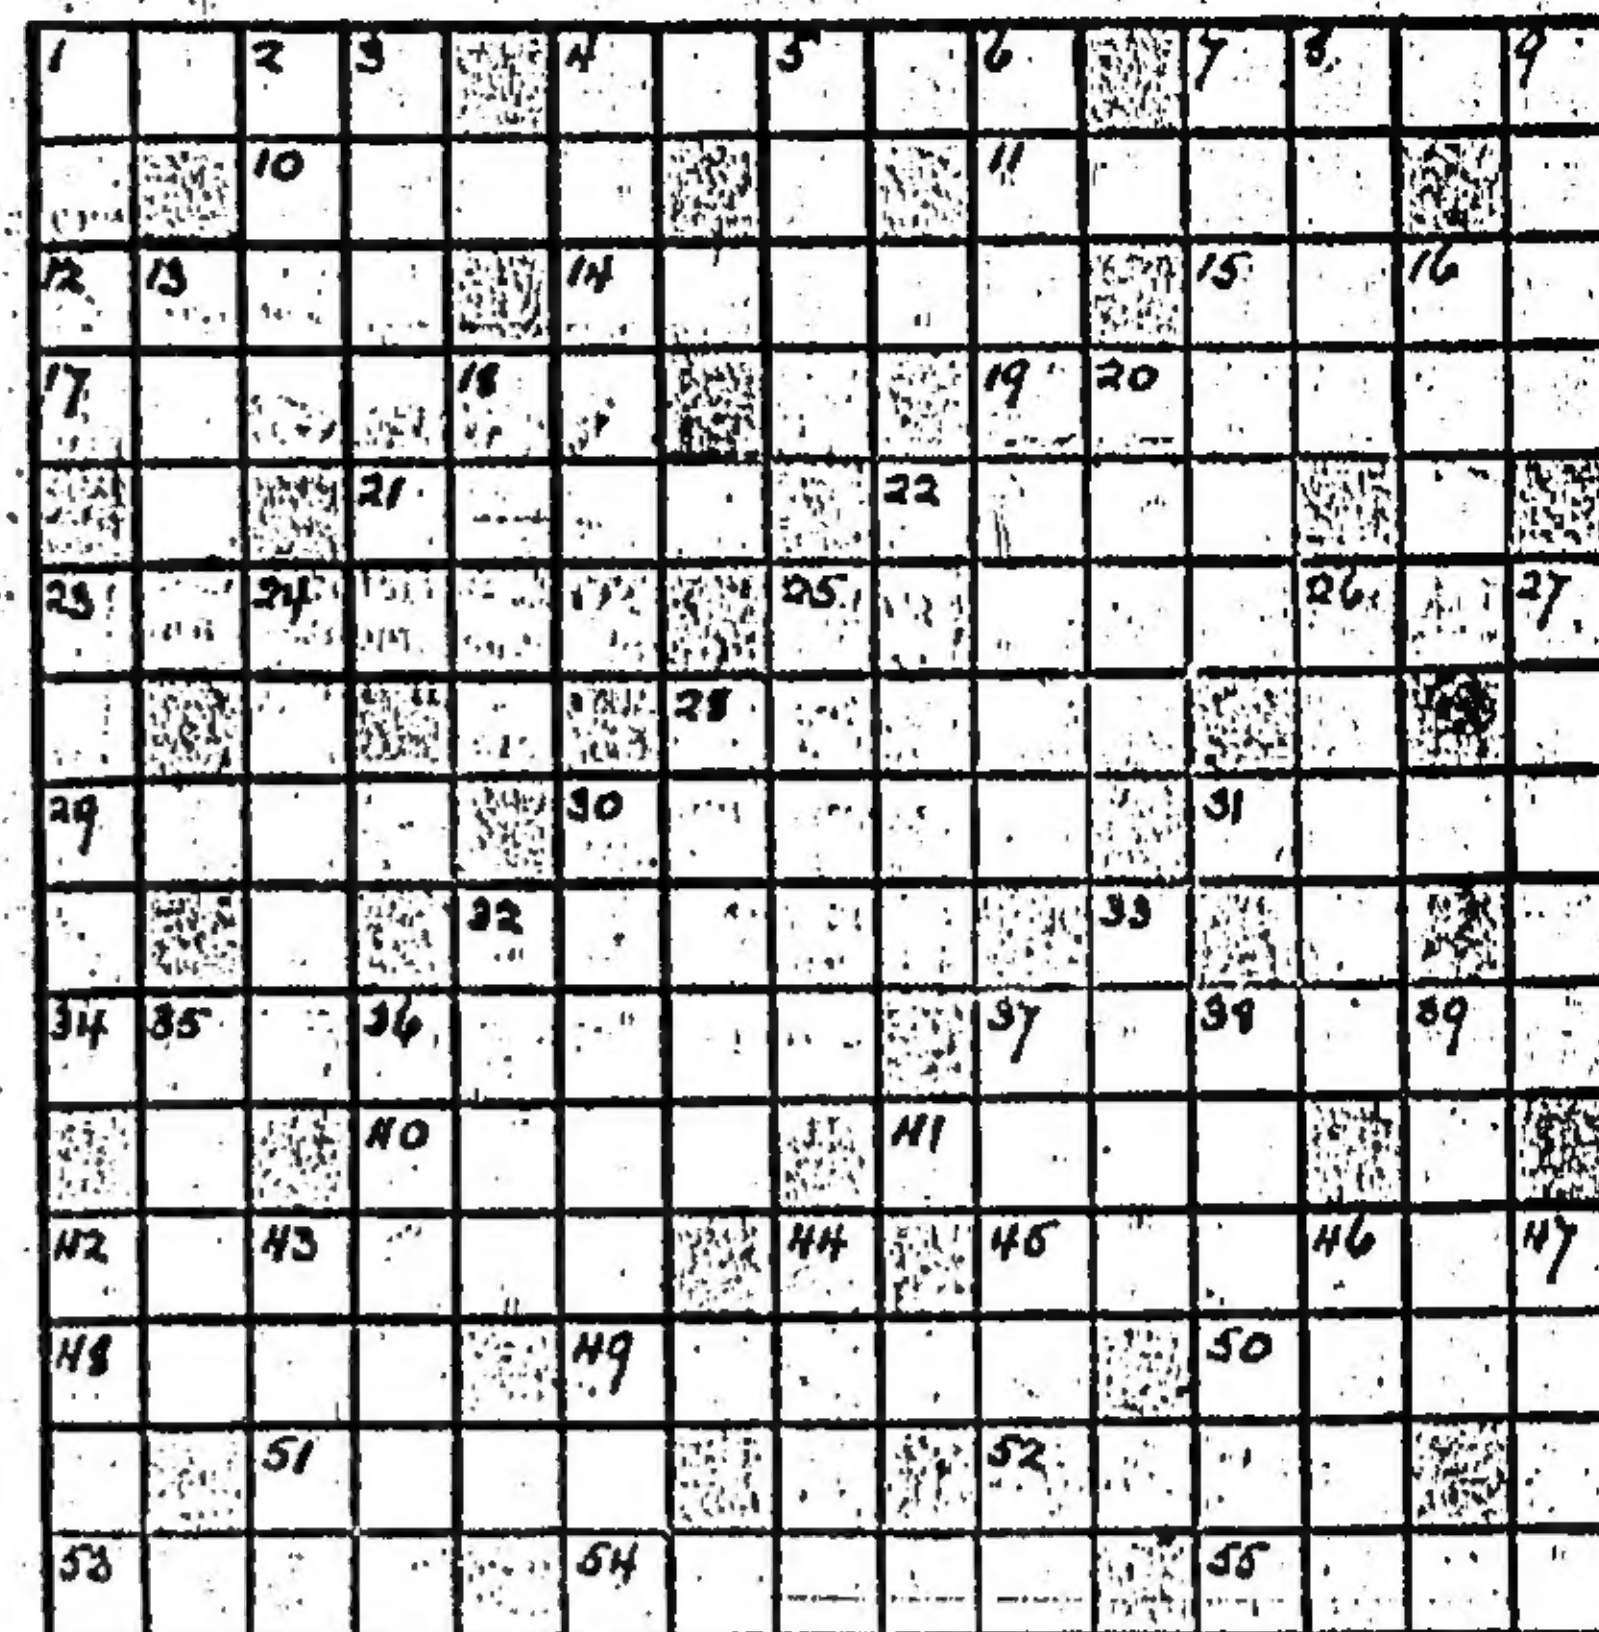 1 2 3 4 5 6 7 8 9
10 11
12 13 14 15 16
17 18 19 20
21 22
23 24 25 26 27
28
29 30 31
32 33
34 35 36 37 38 39
40 41
42 43 44 45 46 47
48 49 50
51 52
53 54 55